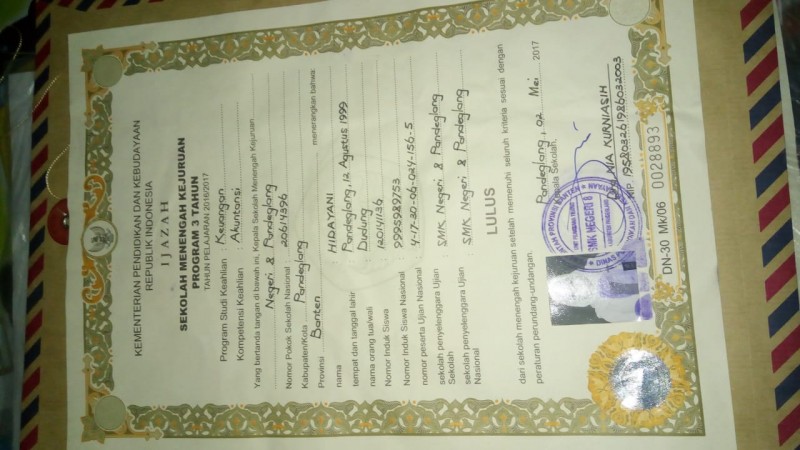 KEMENTERIAN PENDIDIKAN DAN KEBUDAYAAN
REPUBLIK INDONESIA
IJAZAH
SEKOLAH MENENGAH KEJURUAN
PROGRAM 3 TAHUN
TAHUN PELAJARAN 2016/2017
Program Studi Keahlian : Keuangan
Kompetensi Keahlian : Akuntansi
Yang bertanda tangan di bawah ini, Kepala Sekolah Menengah Kejuruan
Negeri 8 Pandeglang
Nomor Pokok Sekolah Nasional : 20614396
Kabupaten/Kota Pandeglang
Provinsi Banten menerangkan bahwa:
nama : HIDAYANI
tempat dan tanggal lahir : Pandeglang, 12 Agustus 1999
nama orang tua/wali : Dudung
Nomor Induk Siswa : 120141136
Nomor Induk Siswa Nasional : 9995989753
nomor peserta Ujian Nasional : 4-17-30-06-024-156-5
sekolah penyelenggara Ujian Sekolah : SMK Negeri 8 Pandeglang
sekolah penyelenggara Ujian Nasional : SMK Negeri 8 Pandeglang
LULUS
dari sekolah menengah kejuruan setelah memenuhi seluruh kriteria sesuai dengan
peraturan perundang-undangan.
Pandeglang, 02 Mei 2017
Kepala Sekolah,
SMK NEGERI 8
KURNIASIH
NIP. 195803261986032003
DN-30 Mk/06 0028893